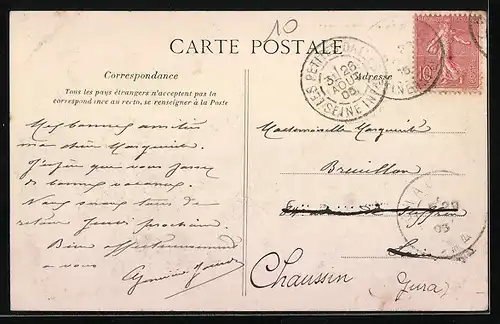 10
CARTE POSTALE
Correspondance
Tous les pays étrangers n'acceptent pas la
correspondance au recto, se renseigner à la Poste
Adresse
LES PETITES-DALLES
26
AOUT
05
SEINE INF
10
Mes bonnes amitiés
ma chère Marguerite
J'espère que vous passez
de bonnes vacances.
Nous serons tous de
retour jeudi prochain.
Bien affectueusement
à vous
Mademoiselle Marguerite
Chaussin
Jura